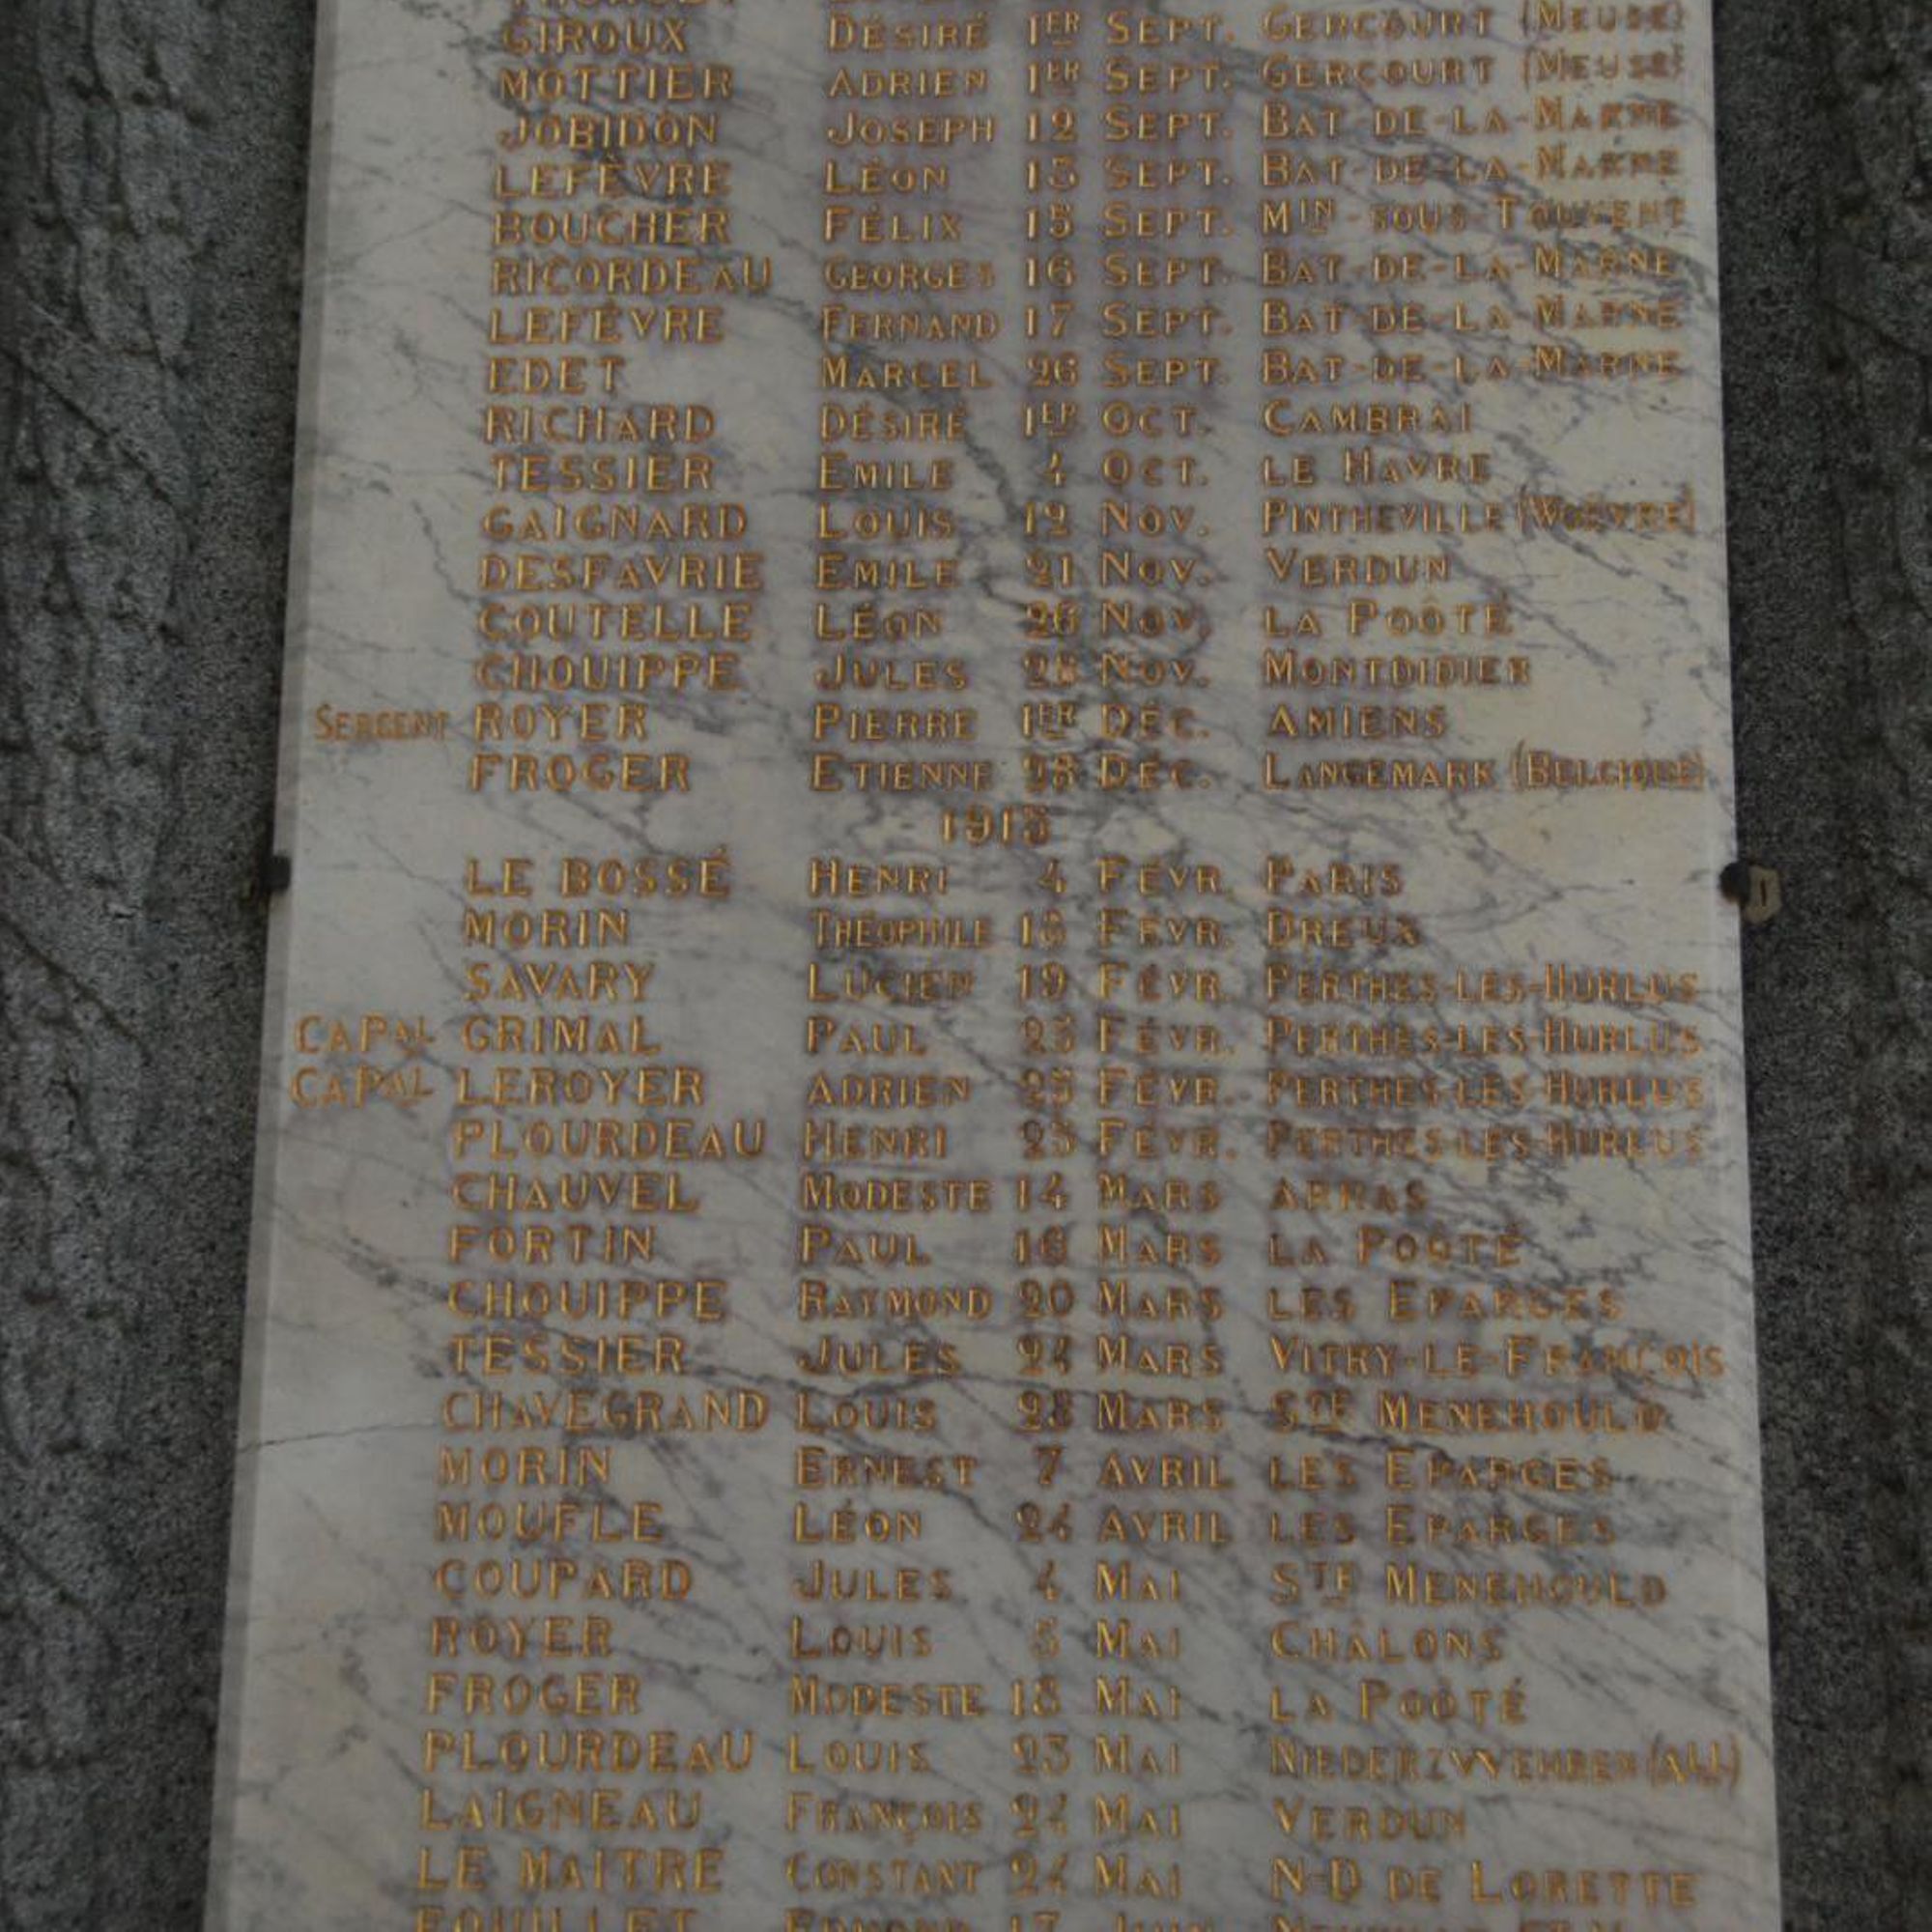 GIROUX DÉSIRÉ 1ER SEPT. GERCOURT (MEUSE)
MOTTIER ADRIEN 1ER SEPT. GERCOURT (MEUSE)
JOBIDON JOSEPH 12 SEPT. BAT-DE-LA-MARNE
LEFÈVRE LÉON 13 SEPT. BAT-DE-LA-MARNE
BOUCHER FÉLIX 15 SEPT. MIN-SOUS-TOUVENT
RICORDEAU GEORGES 16 SEPT. BAT-DE-LA-MARNE
LEFÈVRE FERNAND 17 SEPT. BAT-DE-LA-MARNE
EDET MARCEL 26 SEPT. BAT-DE-LA-MARNE
RICHARD DÉSIRÉ 1ER OCT. CAMBRAI
TESSIER EMILE 4 OCT. LE HAVRE
GAIGNARD LOUIS 12 NOV. PINTHEVILLE (WOËVRE)
DESFAVRIE EMILE 21 NOV. VERDUN
COUTELLE LÉON 26 NOV. LA POÔTÉ
CHOUIPPE JULES 28 NOV. MONTDIDIER
SERGENT ROYER PIERRE 1ER DÉC. AMIENS
FROGER ETIENNE 28 DÉC. LANGEMARK (BELGIQUE)
1915
LE BOSSÉ HENRI 4 FÉVR. PARIS
MORIN THÉOPHILE 18 FÉVR. DREUX
SAVARY LUCIEN 19 FÉVR. PERTHES-LES-HURLUS
CAPAL GRIMAL PAUL 25 FÉVR. PERTHES-LES-HURLUS
CAPAL LEROYER ADRIEN 25 FÉVR. PERTHES-LES-HURLUS
PLOURDEAU HENRI 25 FÉVR. PERTHES-LES-HURLUS
CHAUVEL MODESTE 14 MARS ARRAS
FORTIN PAUL 16 MARS LA POÔTÉ
CHOUIPPE RAYMOND 20 MARS LES EPARGES
TESSIER JULES 24 MARS VITRY-LE-FRANÇOIS
CHAVEGRAND LOUIS 28 MARS STE MENEHOULD
MORIN ERNEST 7 AVRIL LES EPARGES
MOUFLE LÉON 24 AVRIL LES EPARGES
COUPARD JULES 4 MAI STE MENEHOULD
ROYER LOUIS 5 MAI CHÂLONS
FROGER MODESTE 18 MAI LA POÔTÉ
PLOURDEAU LOUIS 23 MAI NIEDERZWEHREN (ALL)
LAIGNEAU FRANÇOIS 24 MAI VERDUN
LE MAITRE CONSTANT 24 MAI N-D DE LORETTE